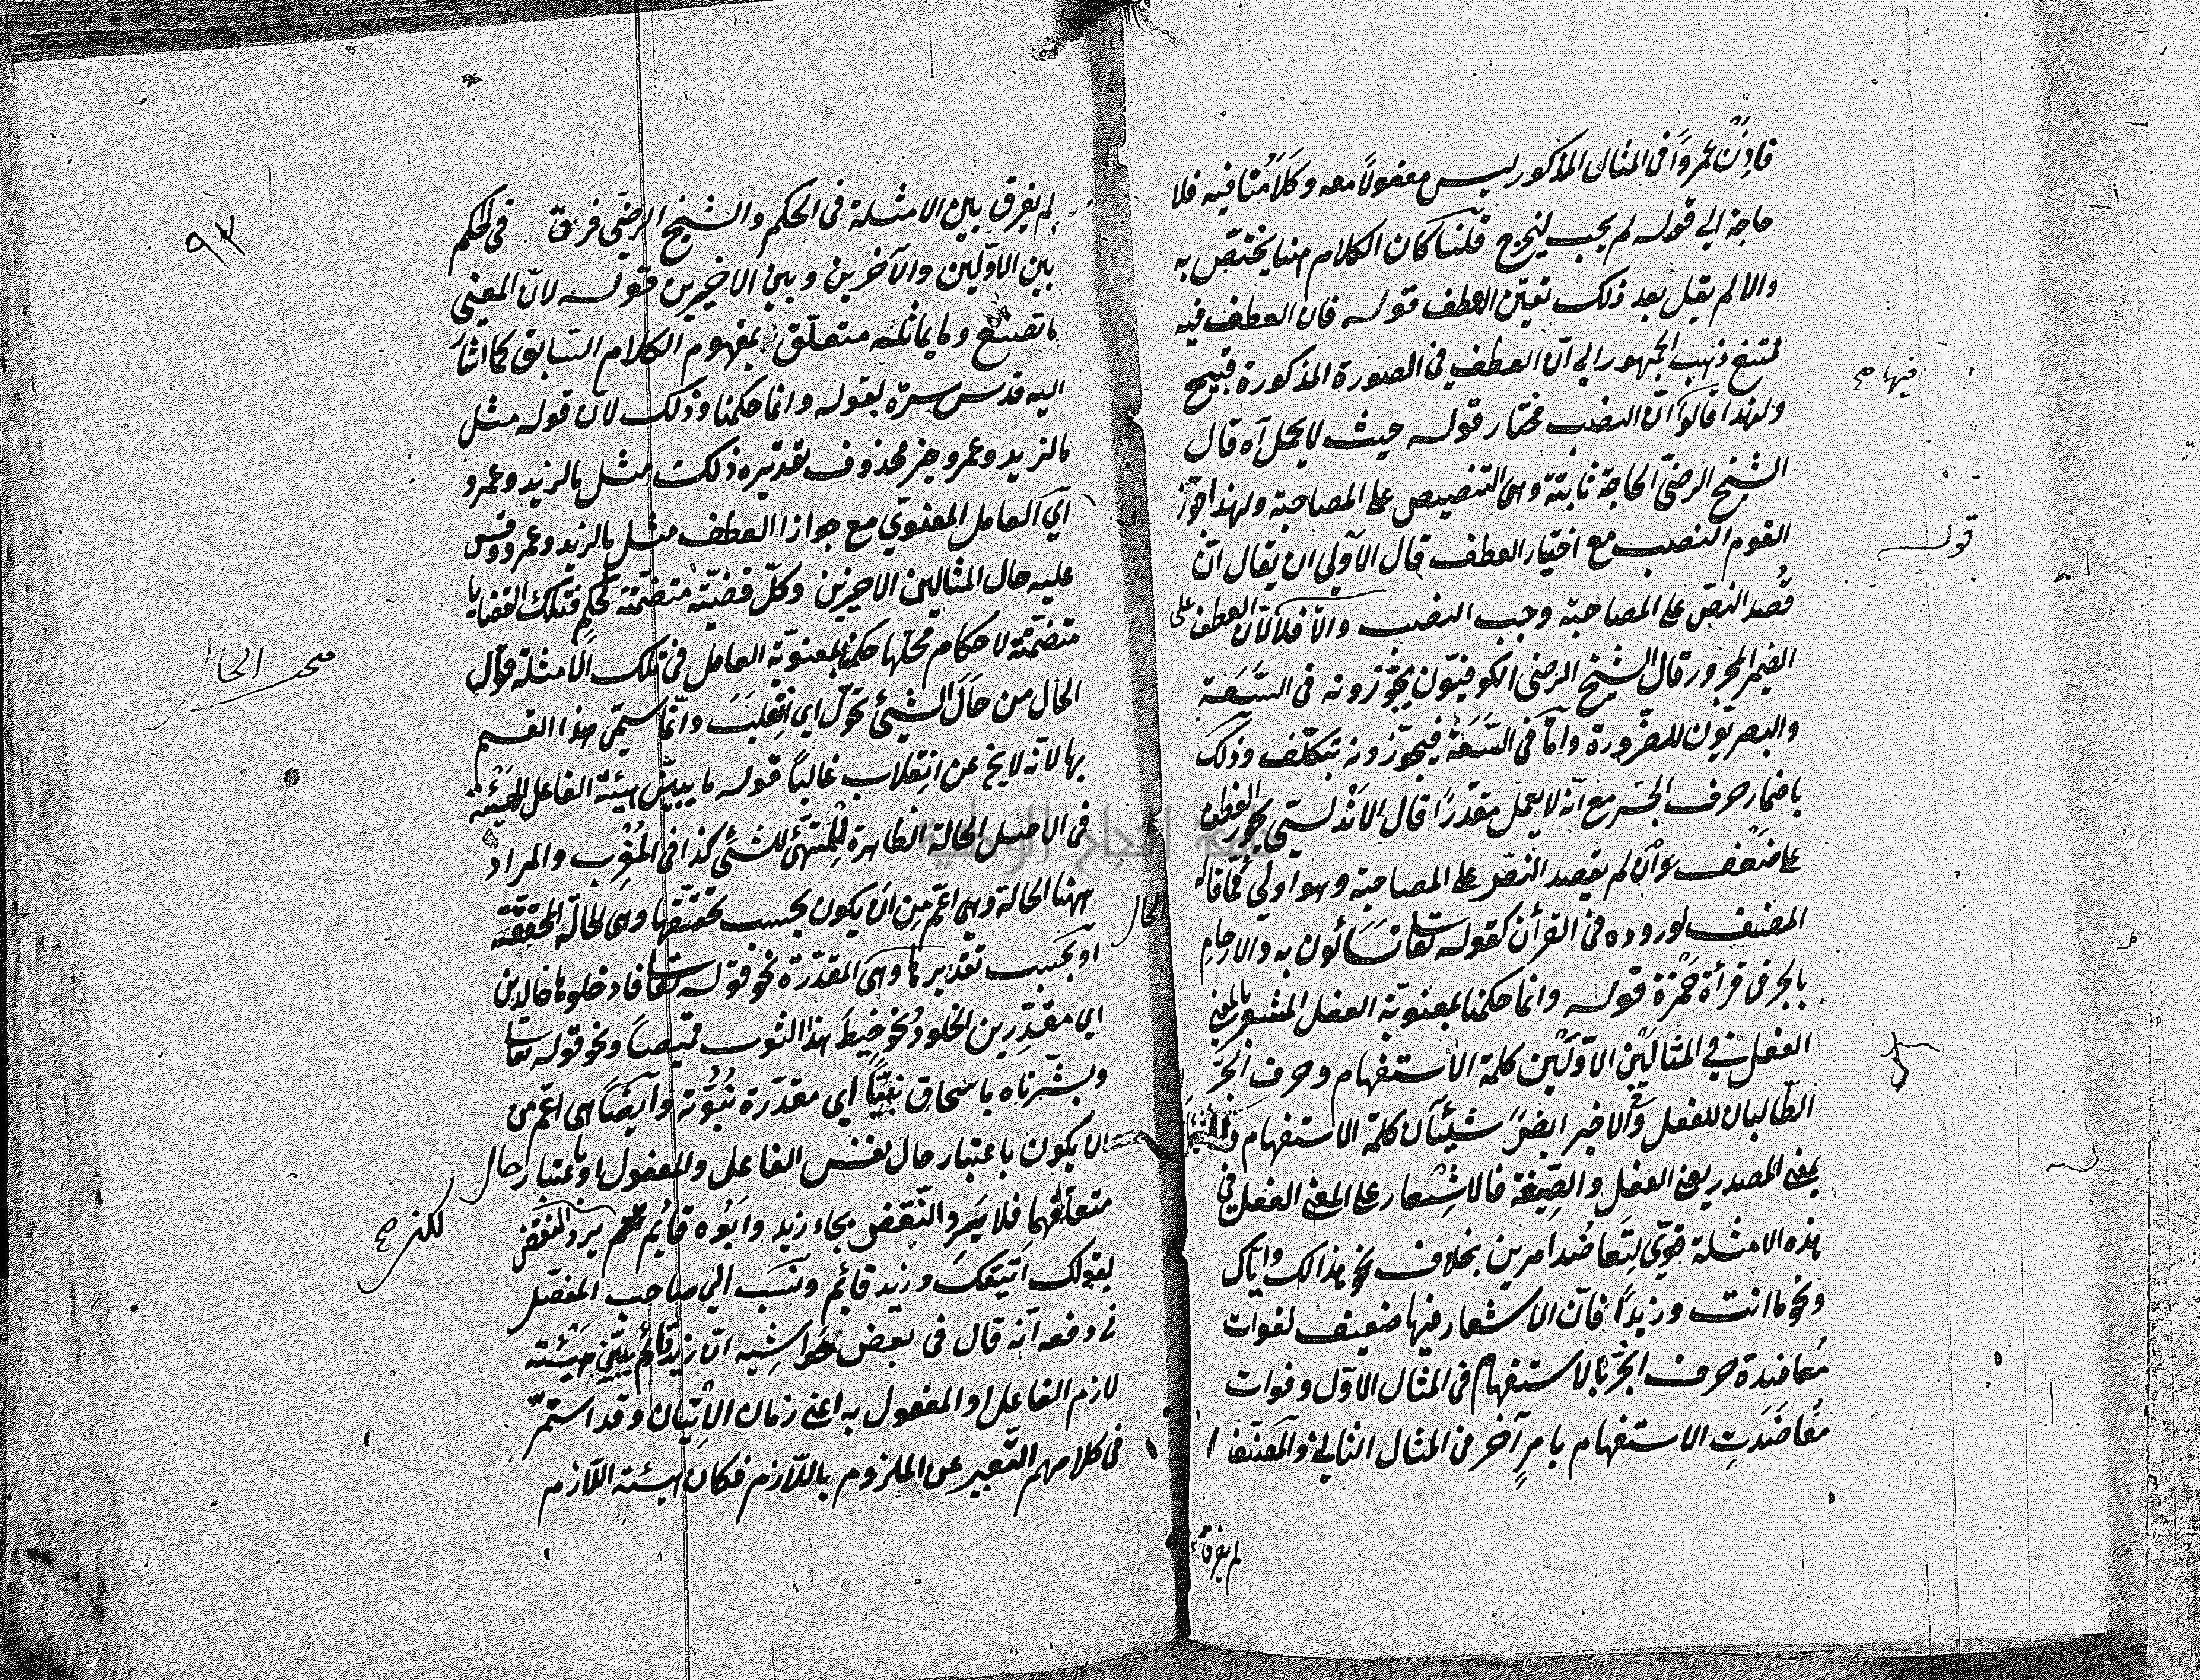 فاذن عمروا في المثال المذكور ليس مفعولا معه وكلامنا فيه فلا
حاجة الى قوله لم يجب ليخرج قلنا كان الكلام هنا يختص به
والا لم يقل بعد ذلك تعين العطف قوله فان العطف فيه
ممتنع ذهب الجمهور الى ان العطف في الصورة المذكورة قبيح
فيها صح
ولهذا قالوا ان النصب مختار قوله حيث لا يحمل آه قال
الشيخ الرضى الحاجة ثابتة وهى التنصيص على المصاحبة ولهذا جوز
القوم النصب مع اختيار العطف قال الاولى ان يقال ان
قوله
قصد النص على المصاحبة وجب النصب والا فلا لان العطف على
الضمير المجرور قال الشيخ الرضى الكوفيون يجوزونه فى السعة
والبصريون للضرورة واما فى السعة فيجوزونه بتكلف وذلك
باضمار حرف الجر مع انه لا يعمل مقدرا قال الاندلسى يجوز العطف
على ضعف وان لم يقصد النص على المصاحبة وهو اولى كما قال
المصنف لوروده فى القرأن كقوله تعالى تسائلون به والارحام
بالجر فى قرأة حمزة قوله وانما حكمنا بمعنوية الفعل المشعر بالمعنى
الفعل فى المثالين الاولين كلمة الاستفهام وحرف الجر
الطالبان للفعل وفى الاخير ايضا شيئان كلمة الاستفهام
بمعنى المصدر يعنى الفعل والصيغة فالاشعار على المعنى الفعل فى
هذه الامثلة قوى لتعاضد امرين بخلاف نحو هذا لك واياك
ونحو ما انت وزيدا فان الاشعار فيها ضعيف لفوات
معاضدة حرف الجر بالاستفهام فى المثال الاول وفوات
معاضدت الاستفهام بامر آخر فى المثال الثانى والمصنف
لم يفرق
٩٢
لم يفرق بين الامثلة فى الحكم والشيخ الرضى فرق فى الحكم
بين الاولين والآخرين وبين الاخيرين قوله لان المعنى
ما تصنع وما يماثله متعلق بمفهوم الكلام السابق كما اشار
اليه قدس سره بقوله وانما حكمنا وذلك لان قوله مثل
مالزيد وعمرو خبر محذوف تقديره ذلك مثل مالزيد وعمرو
اى العامل المعنوى مع جواز العطف مثل مالزيد وعمرو وقس
عليه حال المثالين الاخيرين وكل قضية متضمنة لحكم فتلك القضايا
متضمنة لاحكام محلها حكمنا بمعنوية العامل فى تلك الامثلة قوله
الحال
الحال من حال الشئ تحول اى انقلب وانما سمى هذا القسم
بها لانه لا يخ عن انقلاب غالبا قوله ما يبين هيئة الفاعل الهيئة
فى الاصل الحالة الظاهرة للمتهيئ للشئ كذا فى المغرب والمراد
ههنا الحالة وهى اعم من ان يكون بحسب تحققها وهى الحالة المحققة
الحال
او بحسب تقديرها وهى المقدرة نحو قوله تعالى فادخلوها خالدين
اى مقدرين الخلود نحو خيط هذا الثوب قميصا ونحو قوله تعالى
وبشرناه باسحاق نبيا اى مقدرة نبوته وايضا هى اعم من
ان يكون باعتبار حال نفس الفاعل والمفعول او باعتبار حال
متعلقهما فلا يرد النقض بجاء زيد وابوه قائم يرد النقض
لكنه صح
بقولك اتيتك وزيد قائم ونسب الى صاحب المفصل
فى دفعه انه قال فى بعض حواشيه ان زيد قائم يبين هيئته
لازم الفاعل او المفعول به اعنى زمان الاتيان وقد استمر
فى كلامهم التعبير عن الملزوم باللازم فكان هيئة اللازم